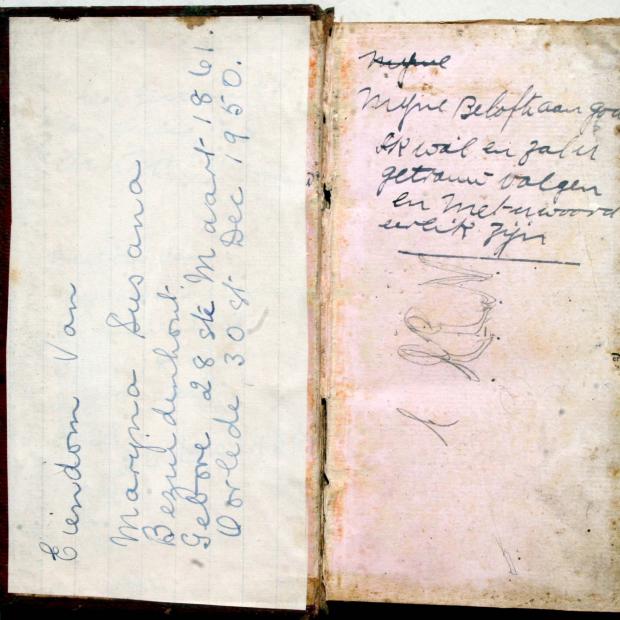 Eiendom Van
Maryna Susana
Bezuidenhout.
Gebore 28 ste Maart 1861.
Oorlede 30 st Dec 1950.
Mijne
Mijne Belofte aan god
Ik wil en zal u
getrouw volgen
en met u woord
eerlik zijn